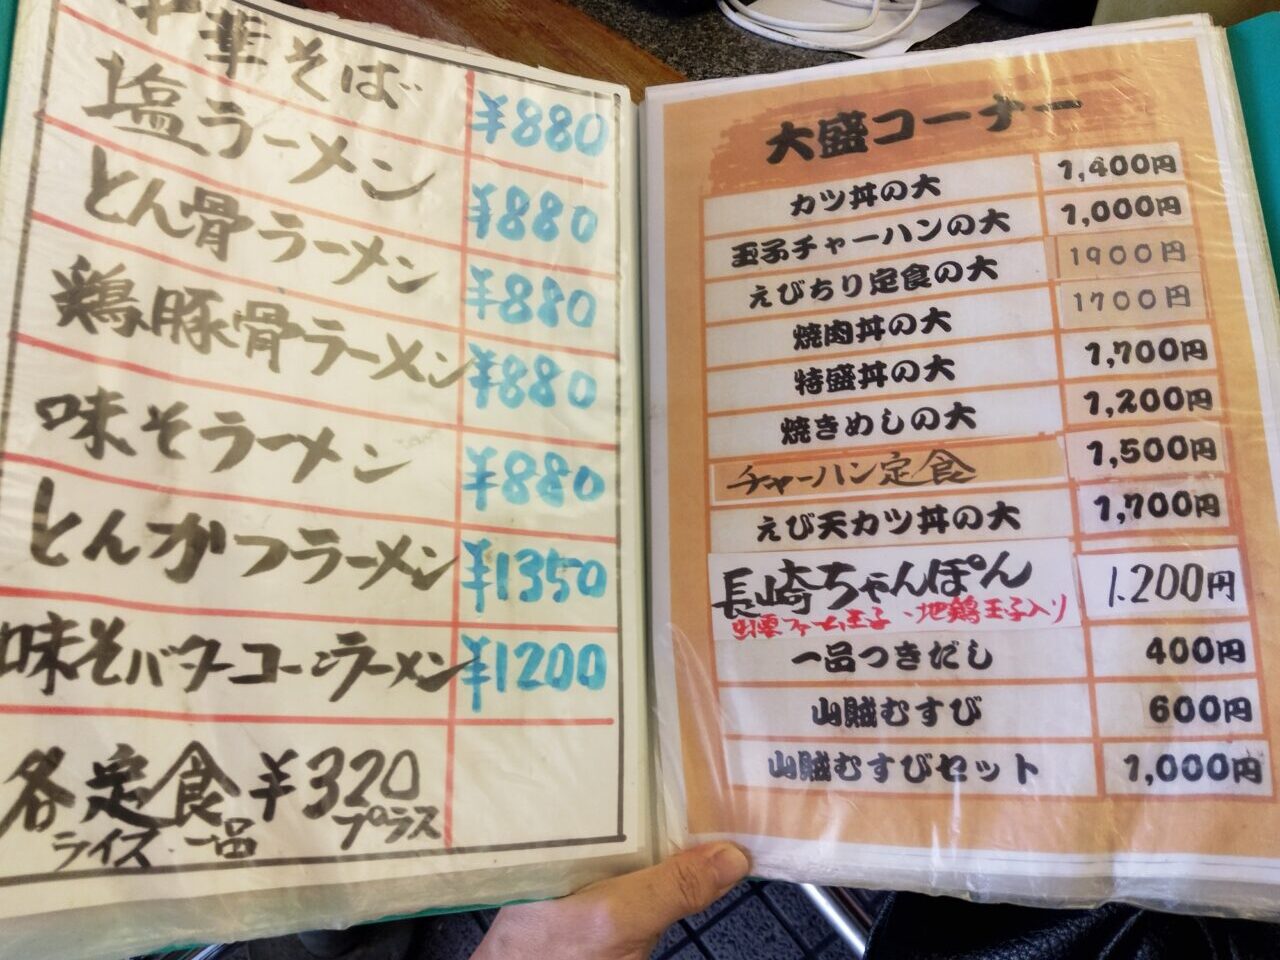 中華そば ¥880
塩ラーメン ¥880
とん骨ラーメン ¥880
鶏豚骨ラーメン ¥880
味そラーメン ¥880
とんかつラーメン ¥1350
味そバターコーンラーメン ¥1200
各定食 ¥320
ライス 一品 プラス
大盛コーナー
カツ丼の大 1,400円
玉子チャーハンの大 1,000円
えびちり定食の大 1900円
焼肉丼の大 1700円
特盛丼の大 1,700円
焼きめしの大 1,200円
チャーハン定食 1,500円
えび天カツ丼の大 1,700円
長崎ちゃんぽん 1.200円
出雲ファーム玉子、地鶏玉子入り
一品つきだし 400円
山賊むすび 600円
山賊むすびセット 1,000円